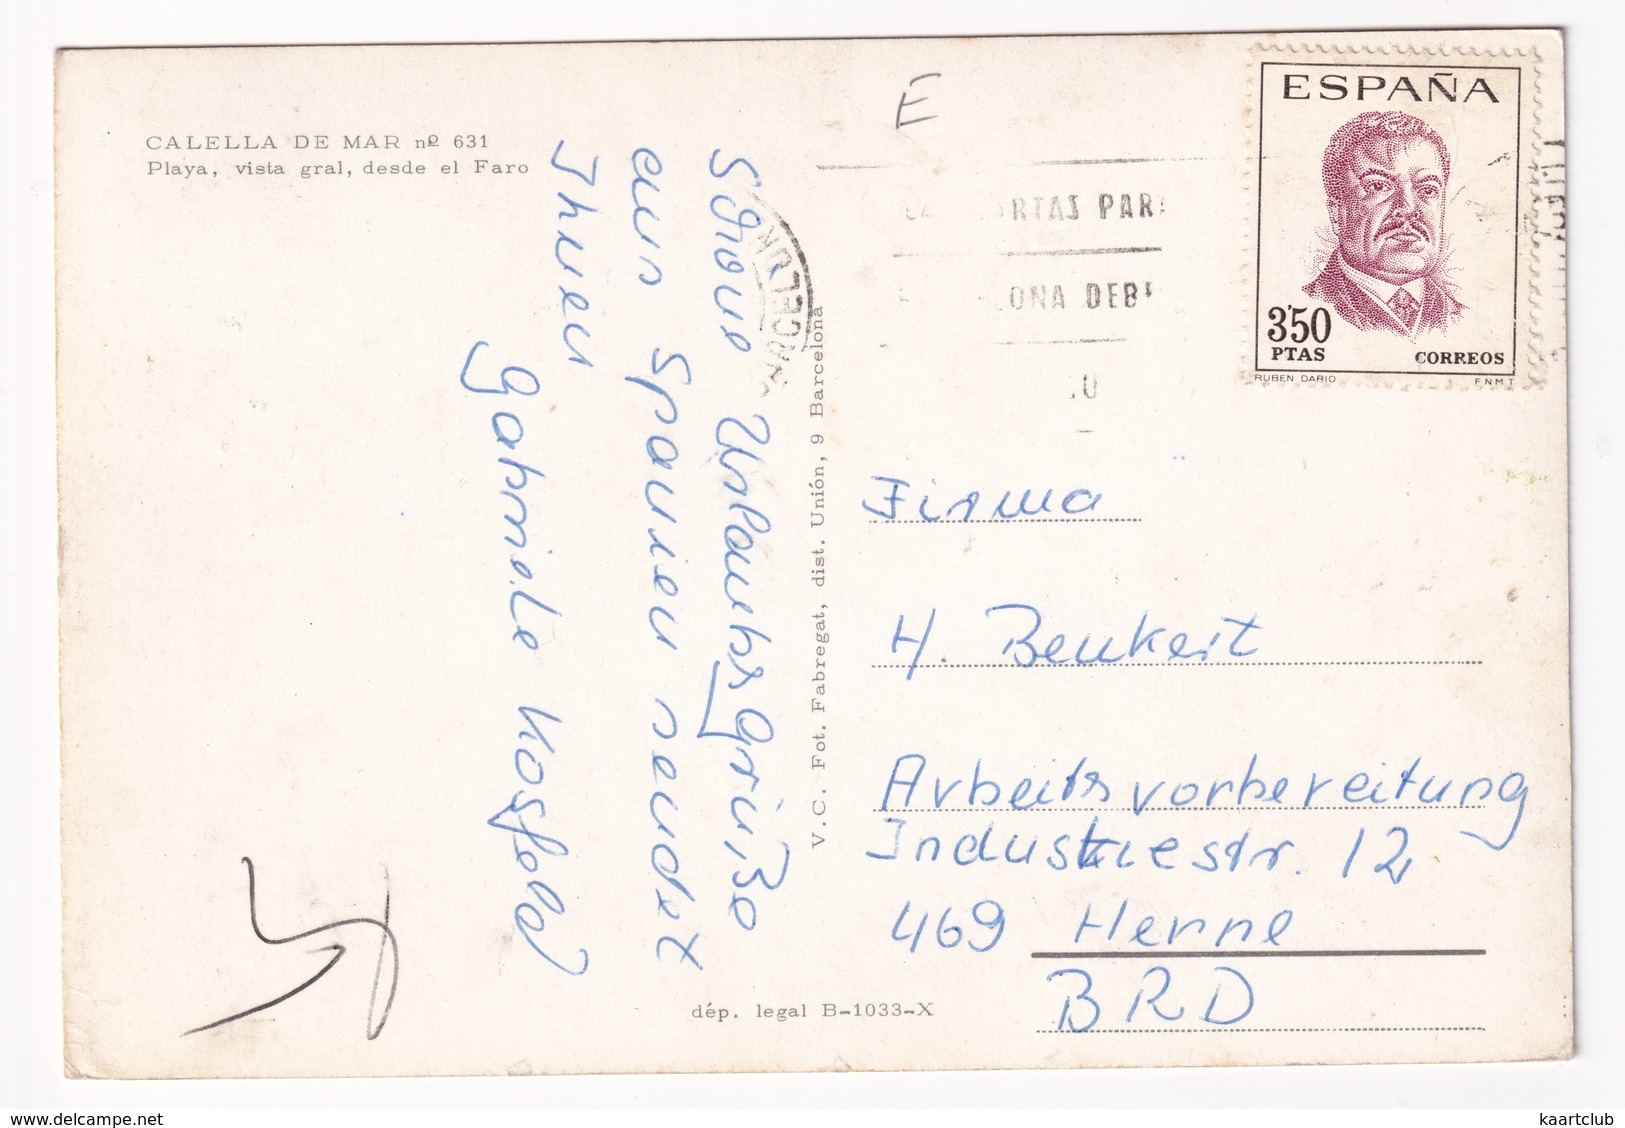 CALELLA DE MAR nº 631
Playa, vista gral, desde el Faro
Schöne Urlaubsgrüße
aus Spanien sendet
Ihnen
Gabriele Kosfeld
V. C. Fot. Fabregat, dist. Unión, 9 Barcelona
dép. legal B-1033-X
E
PAR
ONA DEB
ESPAÑA
3'50
PTAS
CORREOS
RUBEN DARIO
F N M T
Firma
H. Benkert
Arbeitsvorbereitung
Industriestr. 12
469 Herne
BRD
kaartclub